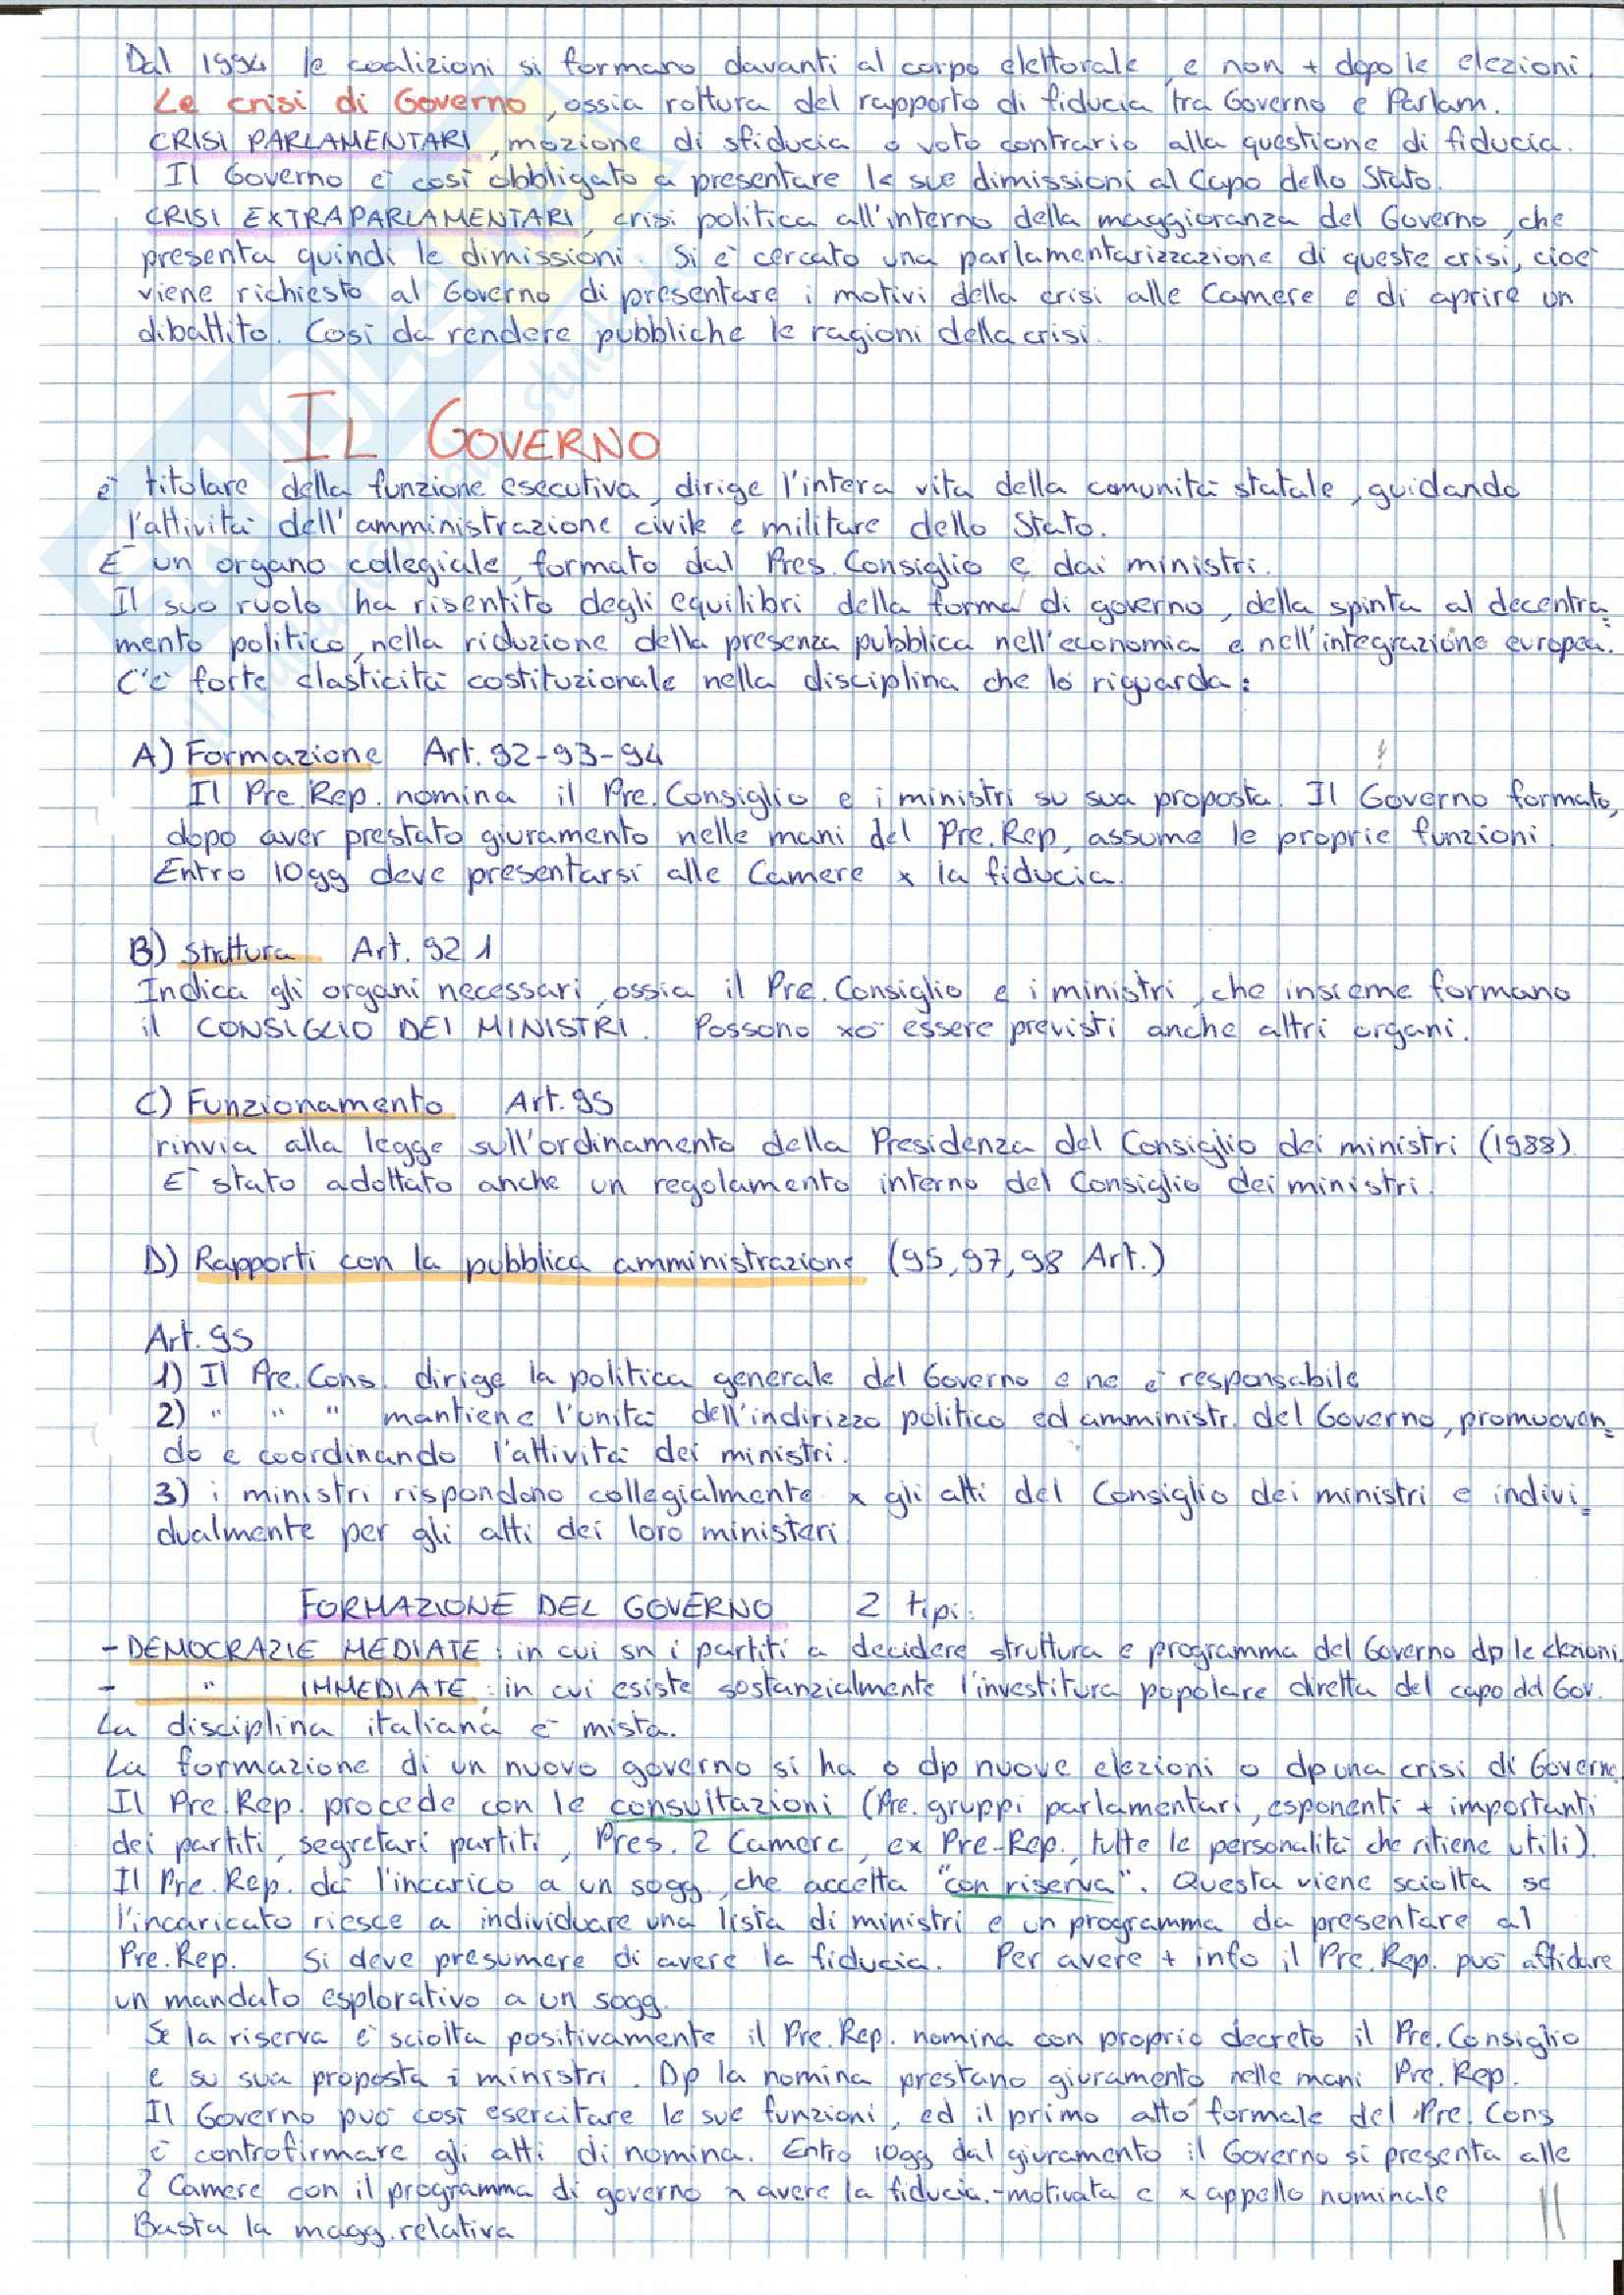 Dal 1994 le coalizioni si formano davanti al corpo elettorale, e non + dopo le elezioni.
Le crisi di Governo, ossia rottura del rapporto di fiducia tra Governo e Parlam.
CRISI PARLAMENTARI, mozione di sfiducia o voto contrario alla questione di fiducia.
Il Governo è così obbligato a presentare le sue dimissioni al Capo dello Stato.
CRISI EXTRAPARLAMENTARI, crisi politica all'interno della maggioranza del Governo, che
presenta quindi le dimissioni. Si è cercato una parlamentarizzazione di queste crisi, cioè
viene richiesto al Governo di presentare i motivi della crisi alle Camere e di aprire un
dibattito. Così da rendere pubbliche le ragioni della crisi.
IL GOVERNO
è titolare della funzione esecutiva, dirige l'intera vita della comunità statale, guidando
l'attività dell'amministrazione civile e militare dello Stato.
È un organo collegiale, formato dal Pres. Consiglio e dai ministri.
Il suo ruolo ha risentito degli equilibri della forma di governo, della spinta al decentra=
mento politico, nella riduzione della presenza pubblica nell'economia e nell'integrazione europea.
C'è forte elasticità costituzionale nella disciplina che lo riguarda:
A) Formazione Art. 92-93-94
Il Pre.Rep. nomina il Pre. Consiglio e i ministri su sua proposta. Il Governo formato,
dopo aver prestato giuramento nelle mani del Pre.Rep, assume le proprie funzioni.
Entro 10gg deve presentarsi alle Camere x la fiducia.
B) Struttura Art. 92 1
Indica gli organi necessari, ossia il Pre. Consiglio e i ministri, che insieme formano
il CONSIGLIO DEI MINISTRI. Possono xò essere previsti anche altri organi.
C) Funzionamento Art. 95
rinvia alla legge sull'ordinamento della Presidenza del Consiglio dei ministri (1988)
È stato adottato anche un regolamento interno del Consiglio dei ministri.
D) Rapporti con la pubblica amministrazione (95, 97, 98 Art.)
Art. 95
1) Il Pre. Cons. dirige la politica generale del Governo e ne è responsabile
2) " " " mantiene l'unità dell'indirizzo politico ed amministr. del Governo, promuoven=
do e coordinando l'attività dei ministri.
3) i ministri rispondono collegialmente x gli atti del Consiglio dei ministri e indivi=
dualmente per gli atti dei loro ministeri
FORMAZIONE DEL GOVERNO 2 tipi:
- DEMOCRAZIE MEDIATE: in cui sn i partiti a decidere struttura e programma del Governo dp le elezioni.
- " IMMEDIATE: in cui esiste sostanzialmente l'investitura popolare diretta del capo del Gov.
La disciplina italiana è mista.
La formazione di un nuovo governo si ha o dp nuove elezioni o dp una crisi di Governo
Il Pre.Rep. procede con le consultazioni (Pre. gruppi parlamentari, esponenti + importanti
dei partiti, segretari partiti, Pres. 2 Camere, ex Pre-Rep., tutte le personalità che ritiene utili).
Il Pre.Rep. dà l'incarico a un sogg, che accetta "con riserva". Questa viene sciolta se
l'incaricato riesce a individuare una lista di ministri e un programma da presentare al
Pre.Rep. Si deve presumere di avere la fiducia. Per avere + info il Pre.Rep. può affidare
un mandato esplorativo a un sogg.
Se la riserva è sciolta positivamente il Pre.Rep. nomina con proprio decreto il Pre.Consiglio
e su sua proposta i ministri. Dp la nomina prestano giuramento nelle mani Pre.Rep.
Il Governo può così esercitare le sue funzioni, ed il primo atto formale del Pre. Cons
è controfirmare gli atti di nomina. Entro 10gg dal giuramento il Governo si presenta alle
2 Camere con il programma di governo x avere la fiducia.-motivata e x appello nominale
Basta la magg.relativa
11